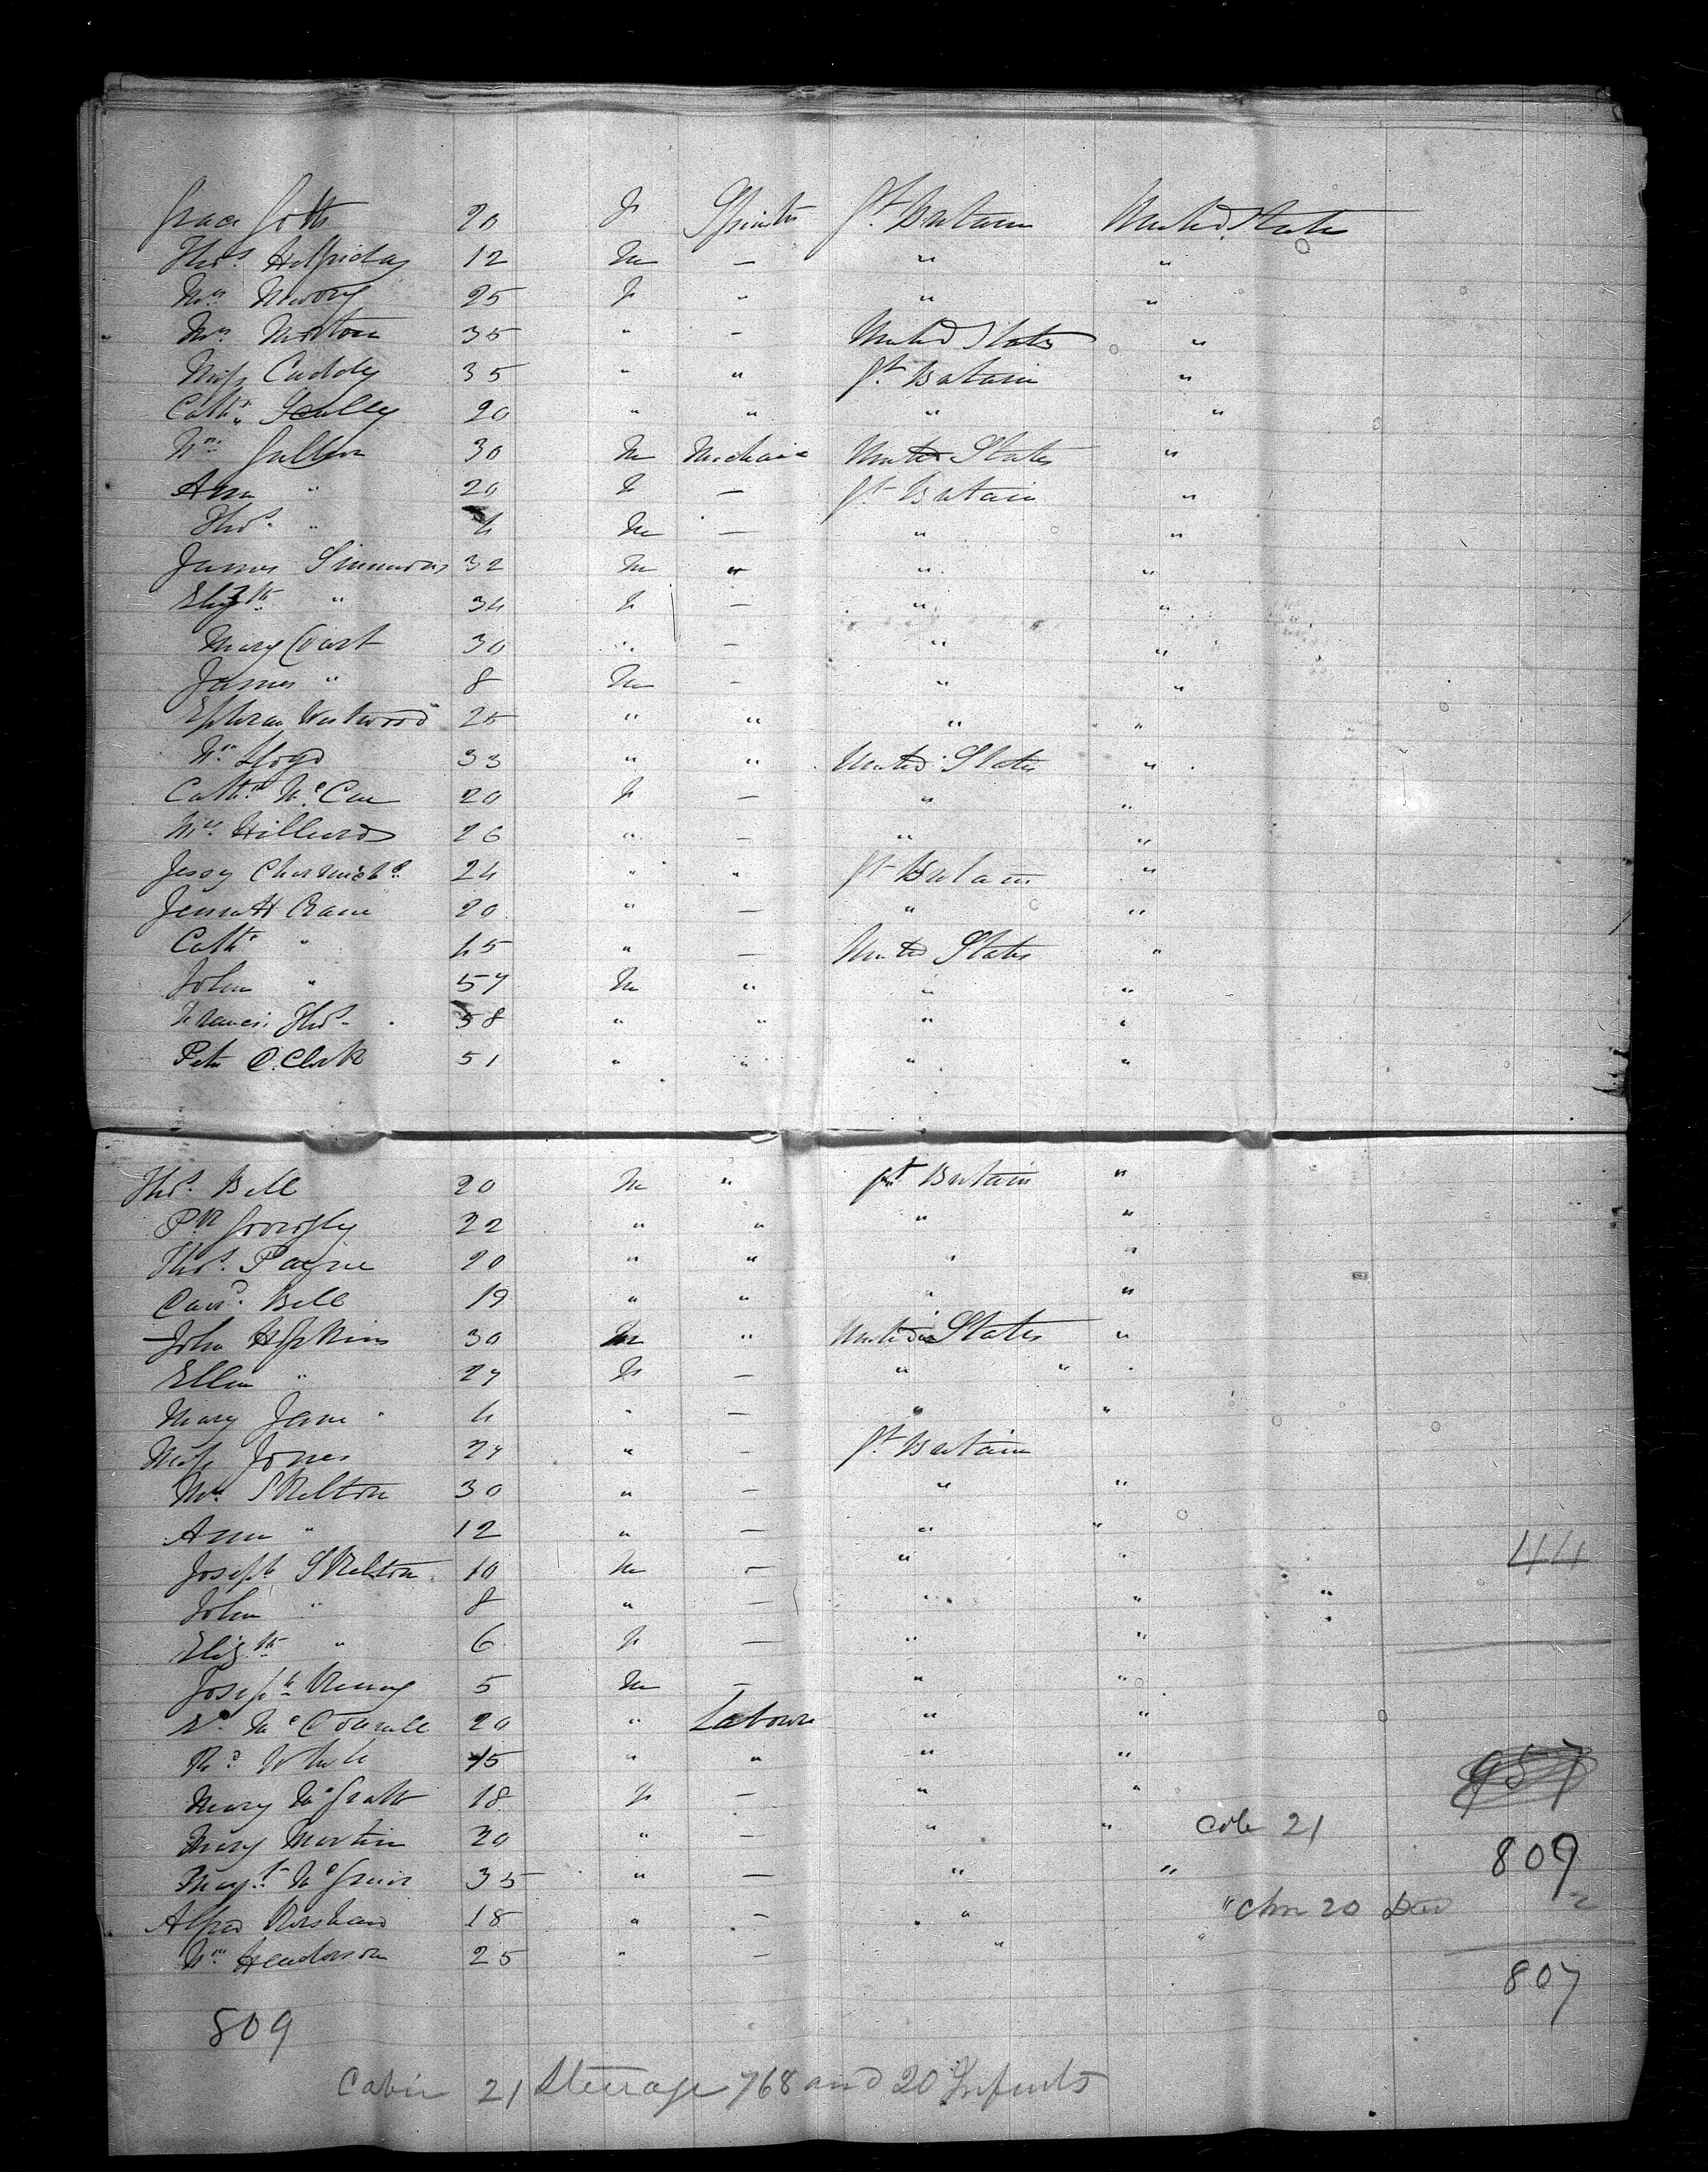 Grace Gott 20 F Spinster Gt. Britain United States
Thos. Holliday 12 M — " "
Mrs. 25 F " " "
Mrs. Norton 35 " — United States "
Miss Cuddy 35 " " Gt. Britain "
Cathe. Scully 20 " " " "
Wm. Gullion 30 M Mechanic United States "
Ann " 20 F — Gt. Britain "
Thos. " 4 M — " "
James Simmons 32 M " " "
Elizth. " 34 F — " "
Mary Court 30 " — " "
James " 8 M - " "
Ephraim Westwood 25 " " " "
Wm. Lloyd 33 " " United States "
Cathe. McCue 20 F — " "
Mrs. Hilliard 26 " — " "
Jessy Charmichl. 24 " " Gt. Britain "
Jennett Crane 20 " — " "
Cathe. " 45 " — United States "
John " 57 M " " "
Francis Thos. 58 " " " "
Peter C. Clark 51 " " " "
Thos. Bell 20 M " Gt. Britain "
Pk. 22 " " " "
Thos. Payne 20 " " " "
Bell 19 " " " "
John Hopkins 30 M " United States "
Ellen " 27 F — " "
Mary Jane " 4 " — " "
Miss Jones 27 " — Gt. Britain
Mrs. Skelton 30 " — " "
Ann " 12 " — " "
Joseph Skelton 10 M — " "
44
John " 8 " — " " "
Elizth. " 6 F — " "
Joseph 5 M — " "
McConnell 20 " Labourer " "
Rd. White 15 " " " "
957
Mary McGrath 18 F — " "
Mary Martin 20 " — " " Cab 21
809
Magt. McGuire 35 " — " "
Alfred Kershaw 18 " — " " "Chn 20 2
Wm. Henderson 25 " — " "
807
809
Cabin 21 Steerage 768 and 20 Infants